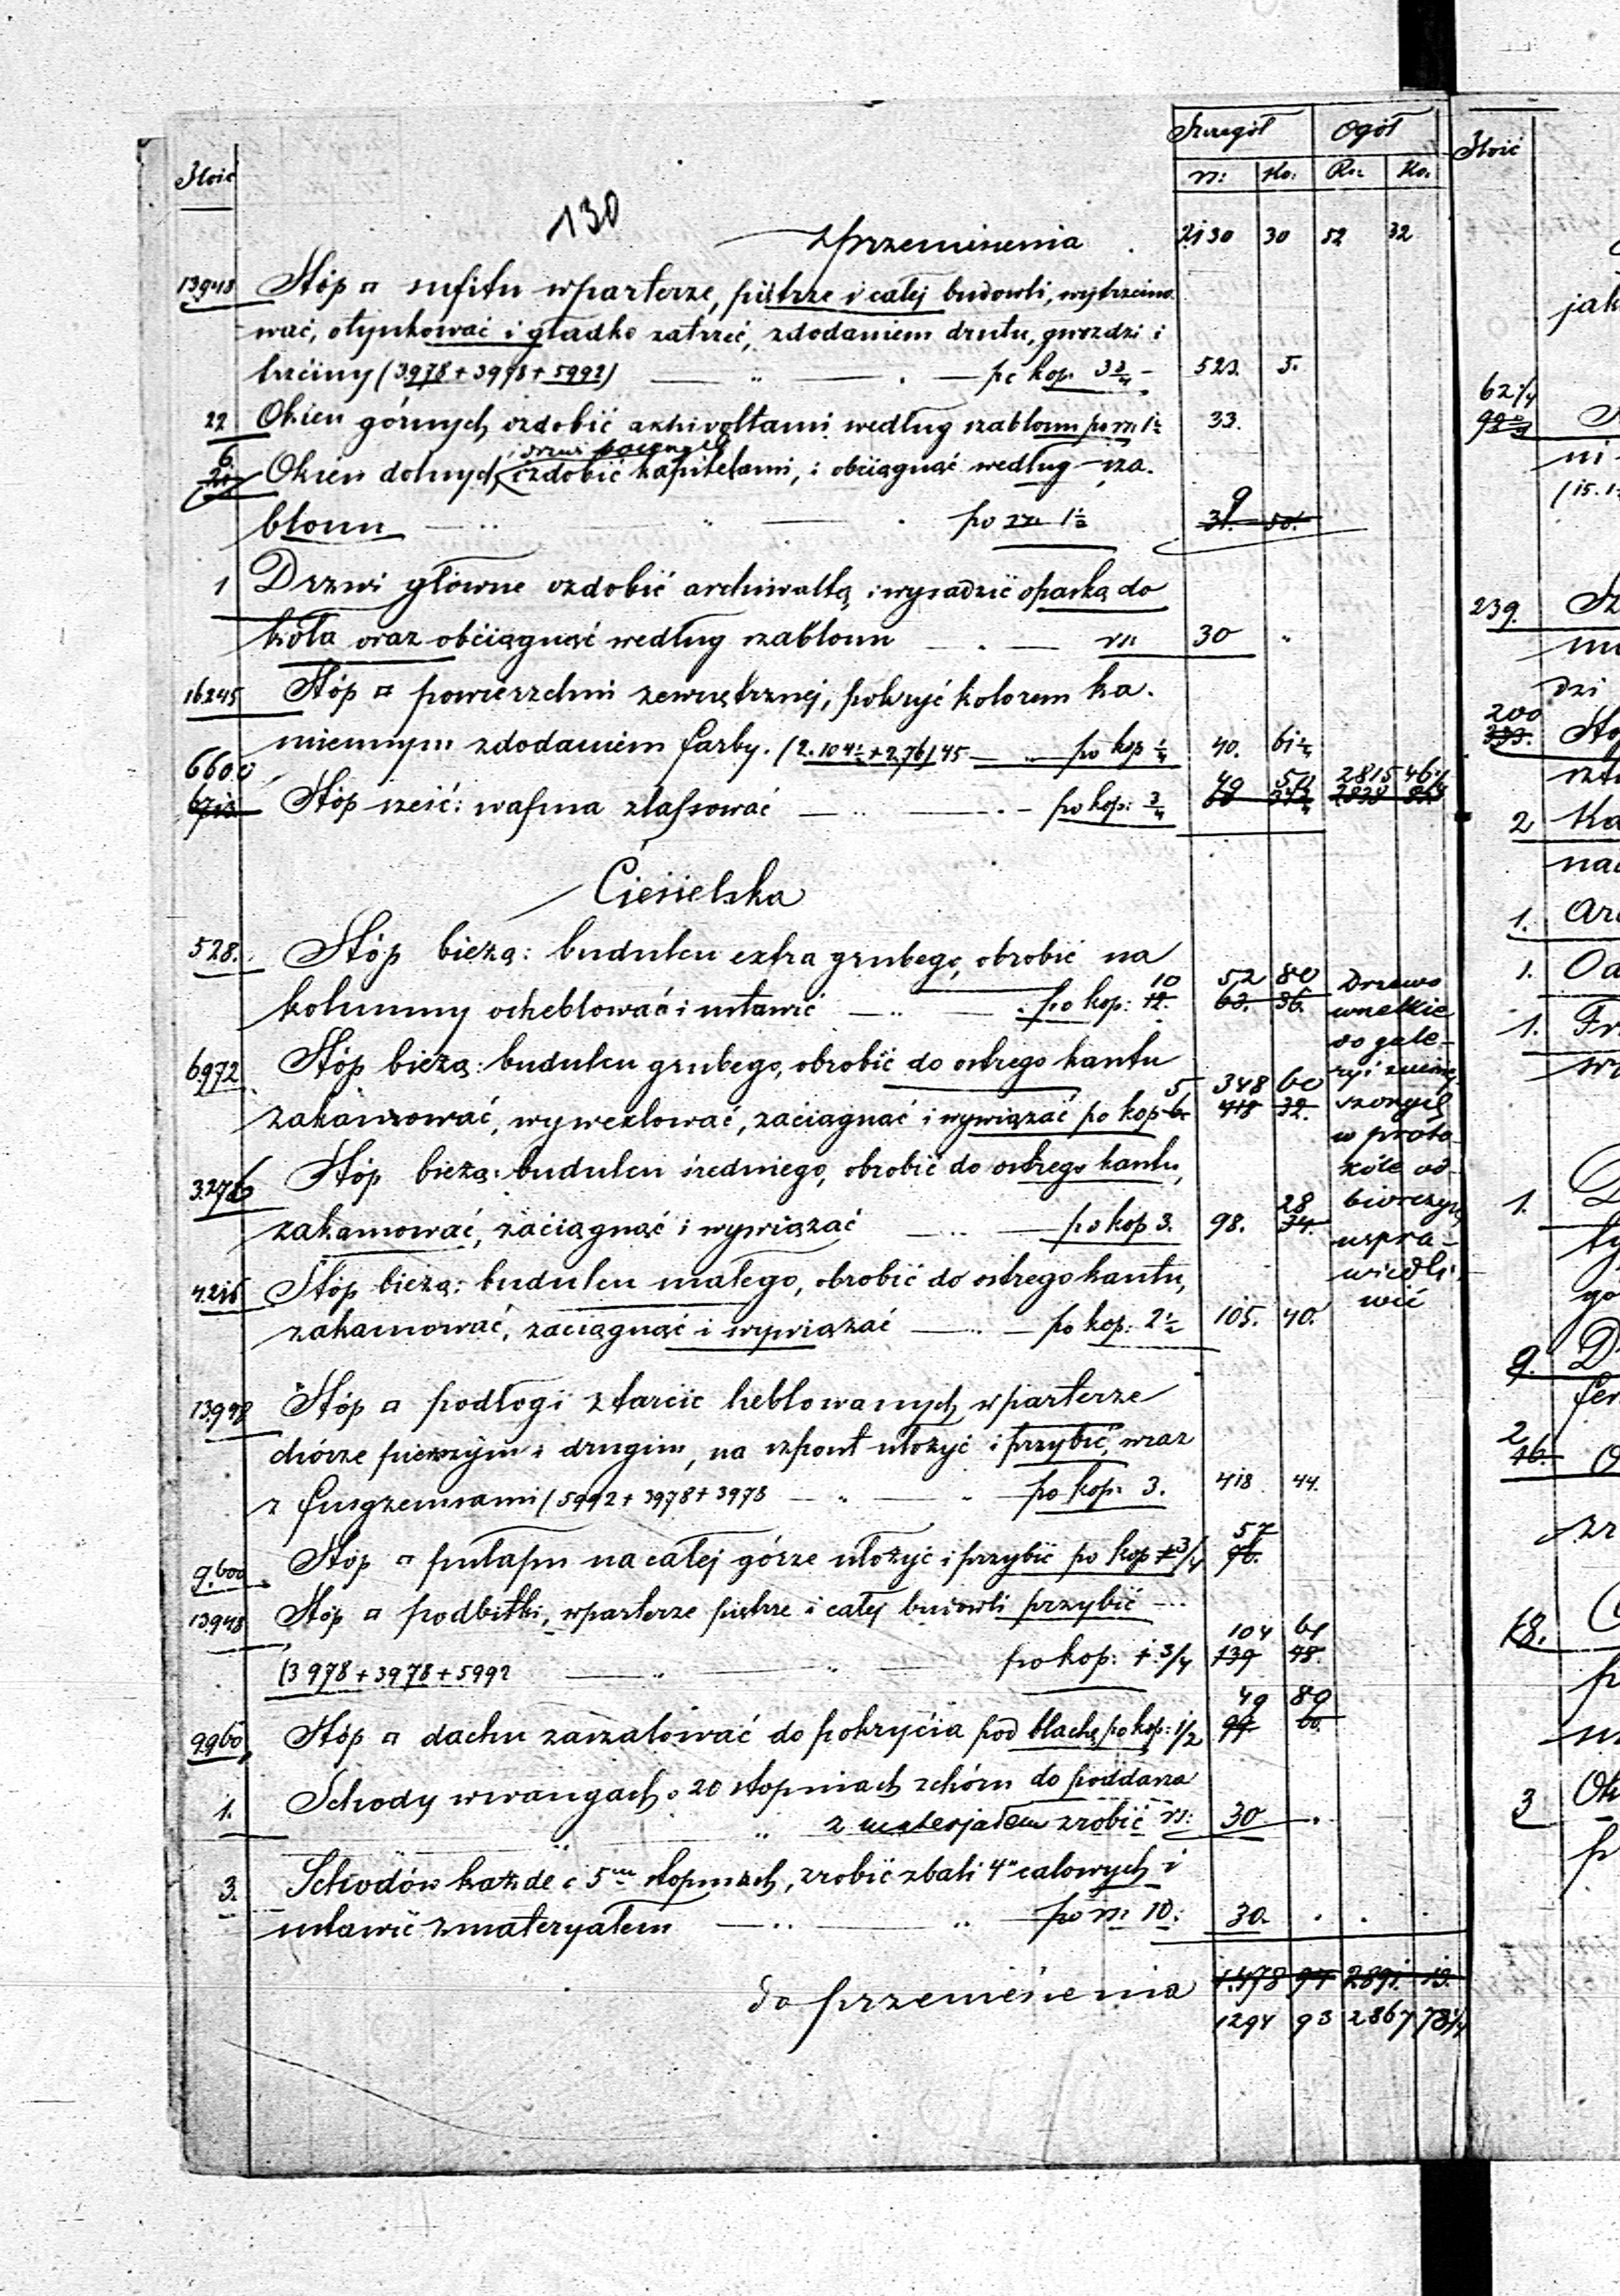 Szczegół Ogół
Ilość rs: ko: Rs: Ko.
130
z przeniesienia 2130 30 52 32
13948 Stóp □ sufitu w parterze, piętrze i całej budowli, wytrzcino
wać, otynkować i gładko zatrzeć, z dodaniem drutu, gwozdzi i
trzciny (3978 + 3978 + 5992) — " — . — po kop. 3¾ — 523. 5.
22 Okien górnych ozdobić arhiwoltami według szablonu po rs 1½ 33.
i drzwi bocznych
6 Okien dolnych ozdobić kapitelami, i obciągnąć według sza.
blonu — " — " — . po rs. 1½ 9
31. 50.
1 Drzwi główne ozdobić archiwoltą i wysadzić opaską do
koła oraz obciągnąć według szablonu — . — rs. 30 "
16245 Stóp □ powierzchni zewnętrznej, pokryć kolorem ka.
miennym z dodaniem farby. (2.104½ + 2,76) 45 — " — po kop ¼ 40. 61¼
6600 49 50 2815 46¼
Stóp sześć: wapna zlasować — " — . — po kop: ¾
Ciesielska
528. Stóp bieżą: budulcu extra grubego, obrobić na
10 52 80
kolumny oheblować i ustawić — " — . po kop: 12. 63. 36.
6972 Stóp bieżą: budulcu grubego, obrobić do ostrego kantu
5 348 60
zakamować, wywexlować, zaciągnąć i wywiązać po kop 6 418 32.
3276 Stóp bieżą: budulcu średniego, obrobić do ostrego kantu,
28
zakamować, zaciągnąć i wywiązać — " — po kop 3. 98. 34.
4216 Stóp bieżą: budulcu małego, obrobić do ostrego kantu,
zakamować, zaciągnąć i wywiązać — " — po kop: 2½ 105. 40.
Drzewo
wszelkie
do gale-
ryi
w proto-
kóle od-
biorczym
uspra-
wiedli.
wić
13948 Stóp □ podłogi z tarcic heblowanych w parterze
chórze pierwszym i drugim, na szpont ułożyć i przybić, wraz
z fugzemsami (5992 + 3978 + 3978 — " — " — po kop: 3. 418 44.
57
9.600 Stóp □ pułapu na całej górze ułożyć i przybić po kop 1 3/4 96.
13948 Stóp □ podbitki, w parterze piętrze i całej budowli przybić — "
104 61
(3978 + 3978 + 5992 — " — " — po kop: 1. 3/4 139 48.
49 80
9960 Stóp □ dachu zaszalować do pokrycia pod blachę po kop: 1/2 99 60.
1. Schody w wangach o 20 stopniach z chóru do poddasza
" z materjałem zrobić rs: 30 .
3. Schodów każde o 5ciu stopniach, zrobić z bali 4" calowych i
ustawić z materyałem — " — " — po rs. 10. 30. . . .
do przeniesienia 1.478 97 2891. 13.
1294 93 2867 78¼
Ilość
jak
62¼
ni
(15.1
239.
dzi
200
333. Sto
2 Ka
nad
1.
1. Od
1. Fr
1.
go
9. D
fer
2
16. O
18.
3 Ok
p